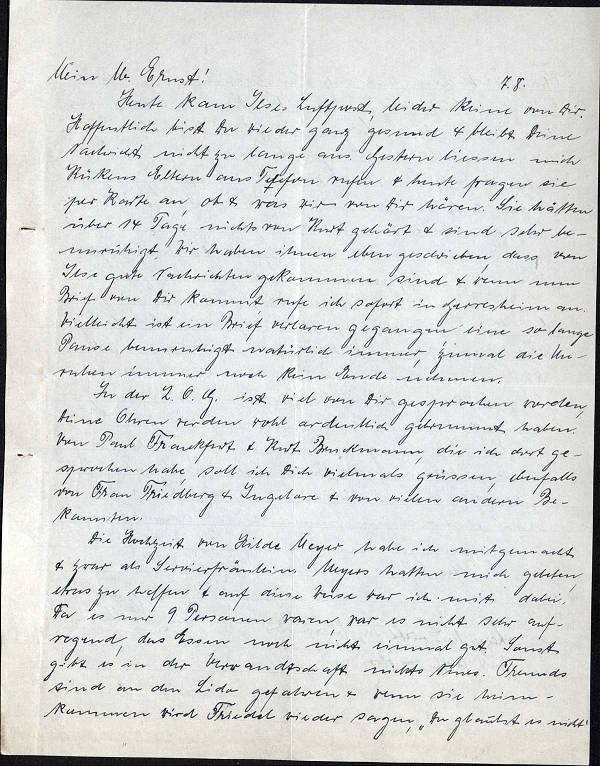 Mein lb. Ernst!
7.8.
Heute kam Ilses Luftpost, leider keine von Dir.
Hoffentlich bist Du wieder ganz gesund & bleibt Deine
Nachricht nicht zu lange aus. Gestern liessen mich
Kükens Eltern ans Telefon rufen & heute fragen sie
per Karte an, ob & was wir von Dir hören. Sie hätten
über 14 Tage nichts von Kurt gehört & sind sehr be-
unruhigt. Wir haben ihnen eben geschrieben dass von
Ilse gute Nachrichten gekommen sind & wenn nun
Brief von Dir kommt rufe ich sofort in Gerresheim an.
Vielleicht ist ein Brief verloren gegangen eine so lange
Pause beunruhigt natürlich immer, zumal die Un-
ruhen immer noch kein Ende nehmen.
In der Z.O.G. ist viel von Dir gesprochen worden,
Deine Ohren werden wohl ordentlich gebrummt haben.
Von Paul Franckfurt & Kurt Bruckmann, die ich dort ge-
sprochen habe, soll ich Dich vielmals grüssen, ebenfalls
von Frau Friedberg & Ingelore & von vielen andern Be-
kannten.
Die Hochzeit von Hilde Meyer habe ich mitgemacht
& zwar als Servierfräulein. Meyers hatten mich gebeten,
etwas zu helfen & auf diese Weise war ich mit dabei.
Da es nur 9 Personen waren, war es nicht sehr auf-
regend, das Essen noch nicht einmal gut. Sonst
gibt es in der Verwandtschaft nichts Neues. Freunds
sind an den Lido gefahren & wenn sie heim-
kommen wird Friedel wieder sagen, "Du glaubst es nicht"